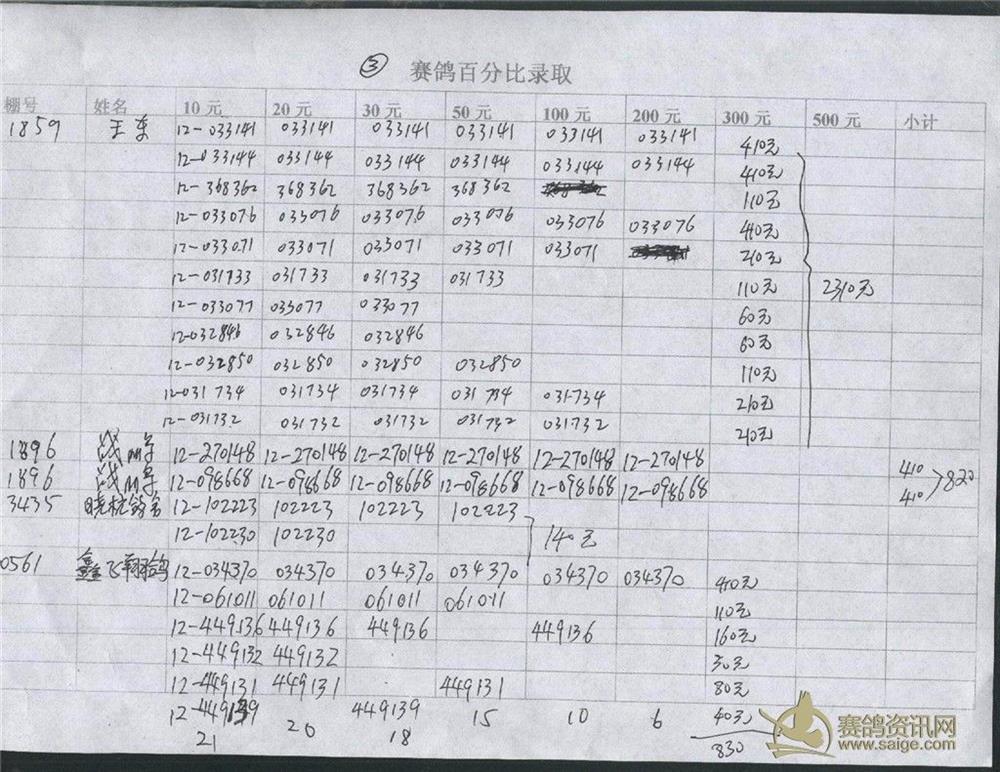 ③ 赛鸽百分比录取
棚号 姓名 10 元 20 元 30 元 50 元 100 元 200 元 300 元 500 元 小计
1859 王东 12-033141 033141 033141 033141 033141 033141 410元
12-033144 033144 033144 033144 033144 033144 410元
12-368362 368362 368362 368362 110元
12-033076 033076 033076 033076 033076 033076 410元
12-033071 033071 033071 033071 033071 210元
12-031733 031733 031733 031733 110元 2310元
12-033077 033077 033077 60元
12-032846 032846 032846 60元
12-032850 032850 032850 032850 110元
12-031734 031734 031734 031734 031734 210元
12-031732 031732 031732 031732 031732 210元
1896 12-270148 12-270148 12-270148 12-270148 12-270148 12-270148 410 820
1896 12-098668 12-098668 12-098668 12-098668 12-098668 12-098668 410
3435 12-102223 102223 102223 102223
12-102230 102230 140元
0561 鑫飞翔鸽 12-034370 034370 034370 034370 034370 034370 410元
12-061011 061011 061011 061011 110元
12-449136 449136 449136 449136 160元
12-449132 449132 30元
12-449131 449131 449131 80元
12-449139 20 449139 15 10 6 40元
21 18 830
赛鸽资讯网
www.saige.com